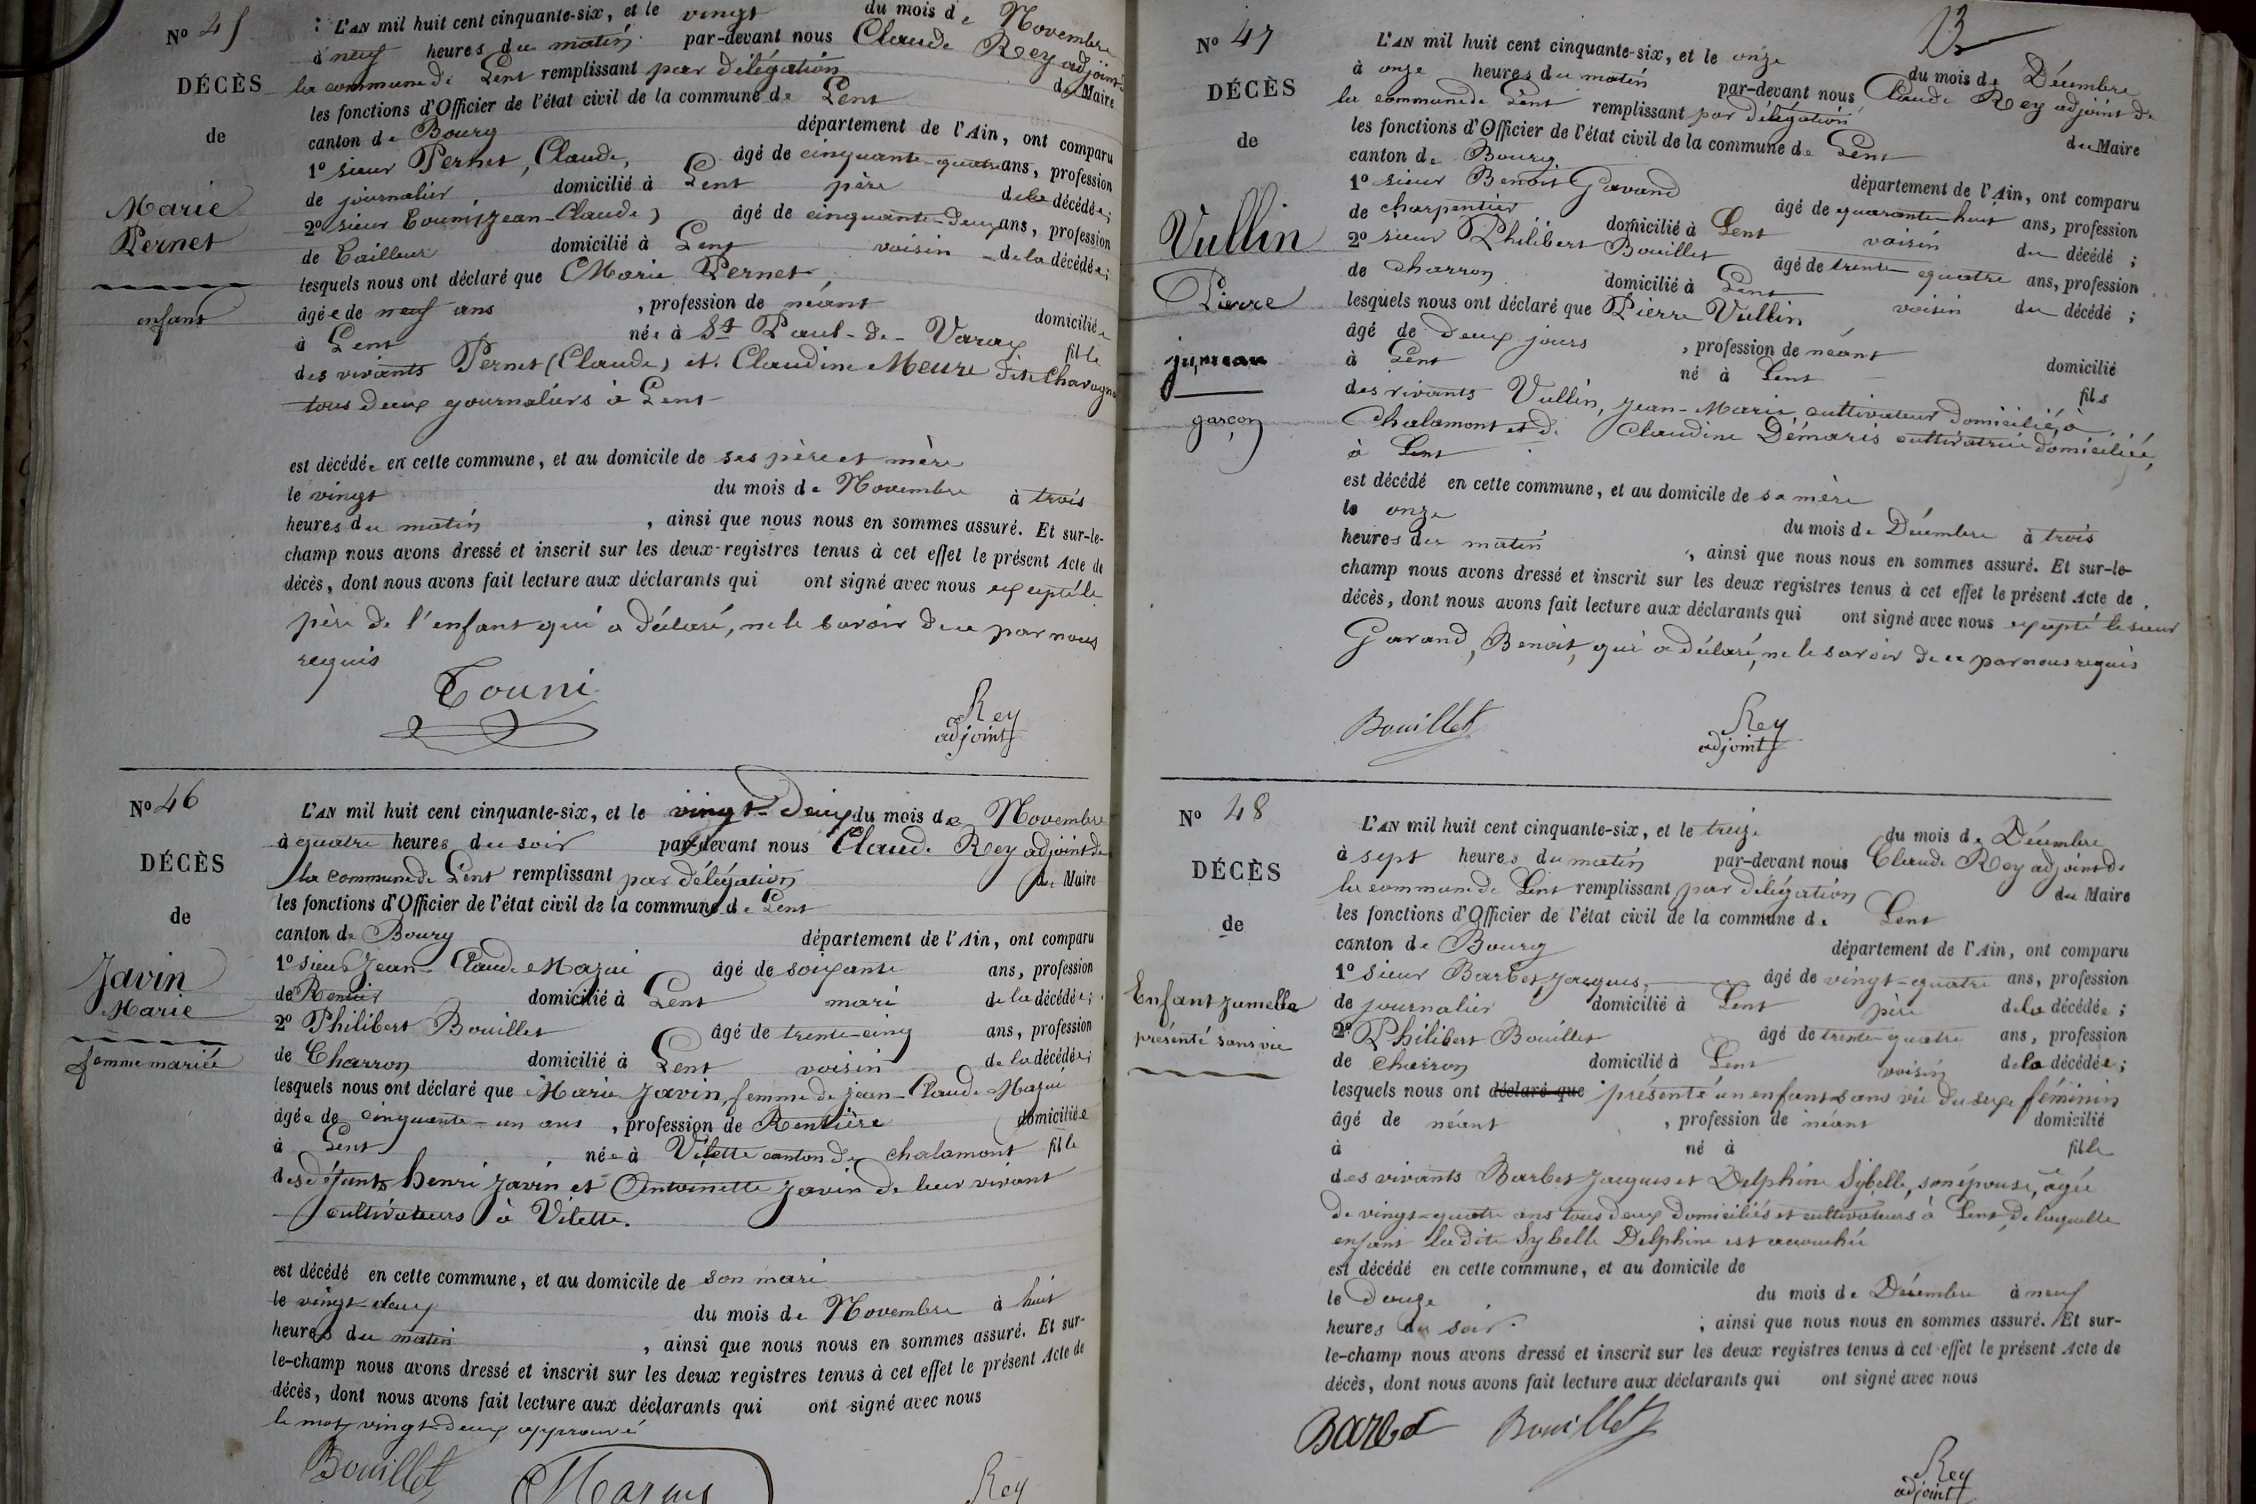 No 45
DÉCÈS
de
Marie
Pernet
enfant
L'AN mil huit cent cinquante-six, et le vingt du mois de Novembre
à neuf heures du matin par-devant nous Claude Rey adjoint de
la commune de Lent remplissant par délégation du Maire
les fonctions d'Officier de l'état civil de la commune de Lent
canton de Bourg département de l'Ain, ont comparu
1o sieur Pernet, Claude, âgé de cinquante-quatre ans, profession
de journalier domicilié à Lent père de la décédée;
2o sieur Touni, Jean-Claude, âgé de cinquante-deux ans, profession
de Tailleur domicilié à Lent voisin de la décédée;
lesquels nous ont déclaré que Marie Pernet
âgée de neuf ans, profession de néant domiciliée
à Lent née à St Paul-de-Varax fille
des vivants Pernet (Claude) et Claudine Meure dite
tous deux journaliers à Lent
est décédée en cette commune, et au domicile de ses père et mère
le vingt du mois de Novembre à trois
heures du matin, ainsi que nous nous en sommes assuré. Et sur-le-
champ nous avons dressé et inscrit sur les deux registres tenus à cet effet le présent Acte de
décès, dont nous avons fait lecture aux déclarants qui ont signé avec nous excepté le
père de l'enfant qui a déclaré, ne le savoir de ce par nous
requis
Touni
Rey
adjoint
No 46
DÉCÈS
de
Javin
Marie
femme mariée
L'AN mil huit cent cinquante-six, et le vingt-deux du mois de Novembre
à quatre heures du soir par-devant nous Claude Rey adjoint de
la commune de Lent remplissant par délégation de Maire
les fonctions d'Officier de l'état civil de la commune de Lent
canton de Bourg département de l'Ain, ont comparu
1o sieur Jean-Claude Mazui âgé de soixante ans, profession
de Rentier domicilié à Lent mari de la décédée;
2o Philibert Bouillet âgé de trente-cinq ans, profession
de Charron domicilié à Lent voisin de la décédée;
lesquels nous ont déclaré que Marie Javin, femme de Jean-Claude Mazui
âgée de cinquante-un ans, profession de Rentière domiciliée
à Lent née à Vilette canton de chalamont fille
des défunts henri Javin et Antoinette Javin de leur vivant
cultivateurs à Vilette.
est décédé en cette commune, et au domicile de son mari
le vingt-deux du mois de Novembre à huit
heures du matin, ainsi que nous nous en sommes assuré. Et sur-
le-champ nous avons dressé et inscrit sur les deux registres tenus à cet effet le présent Acte de
décès, dont nous avons fait lecture aux déclarants qui ont signé avec nous
le mot vingt-deux approuvé
Bouillet
Rey
No 47
DÉCÈS
de
Vullin
Pierre
jumeau
garçon
13
L'AN mil huit cent cinquante-six, et le onze du mois de Décembre
à onze heures du matin par-devant nous Claude Rey adjoint de
la commune de Lent remplissant par délégation du Maire
les fonctions d'Officier de l'état civil de la commune de Lent
canton de Bourg département de l'Ain, ont comparu
1o sieur Benoit Gavand âgé de quarante-huit ans, profession
de charpentier domicilié à Lent voisin du décédé;
2o sieur Philibert Bouillet âgé de trente quatre ans, profession
de charron domicilié à Lent voisin du décédé;
lesquels nous ont déclaré que Pierre Vullin
âgé de deux jours, profession de néant domicilié
à Lent né à Lent fils
des vivants Vullin, Jean-Marie, cultivateur domicilié, à
Chalamont et de Claudine Démaris cultivatrice domiciliée,
à Lent
est décédé en cette commune, et au domicile de sa mère
le onze du mois de Décembre à trois
heures du matin, ainsi que nous nous en sommes assuré. Et sur-le-
champ nous avons dressé et inscrit sur les deux registres tenus à cet effet le présent Acte de
décès, dont nous avons fait lecture aux déclarants qui ont signé avec nous excepté le sieur
Gavand, Benoit, qui a déclaré, ne le savoir de ce par nous requis
Bouillet
Rey
adjoint
No 48
DÉCÈS
de
Enfant jumelle
présenté sans vie
L'AN mil huit cent cinquante-six, et le treize du mois de Décembre
à sept heures du matin par-devant nous Claude Rey adjoint de
la commune de Lent remplissant par délégation du Maire
les fonctions d'Officier de l'état civil de la commune de Lent
canton de Bourg département de l'Ain, ont comparu
1o sieur Barbet Jacques, âgé de vingt-quatre ans, profession
de journalier domicilié à Lent père de la décédée;
2o Philibert Bouillet âgé de trente-quatre ans, profession
de charron domicilié à Lent voisin de la décédée;
lesquels nous ont déclaré que présenté un enfant sans vie du sexe féminin
âgé de néant, profession de néant domicilié
à né à fille
des vivants Barbet Jacques et Delphine Sybelle, son épouse, âgée
de vingt-quatre ans tous deux domiciliés et cultivateurs à Lent, de laquelle
enfant la dite Sybelle Delphine est accouchée
est décédé en cette commune, et au domicile de
le douze du mois de Décembre à neuf
heures du soir; ainsi que nous nous en sommes assuré. Et sur-
le-champ nous avons dressé et inscrit sur les deux registres tenus à cet effet le présent Acte de
décès, dont nous avons fait lecture aux déclarants qui ont signé avec nous
Barbet Bouillet
Rey
adjoint